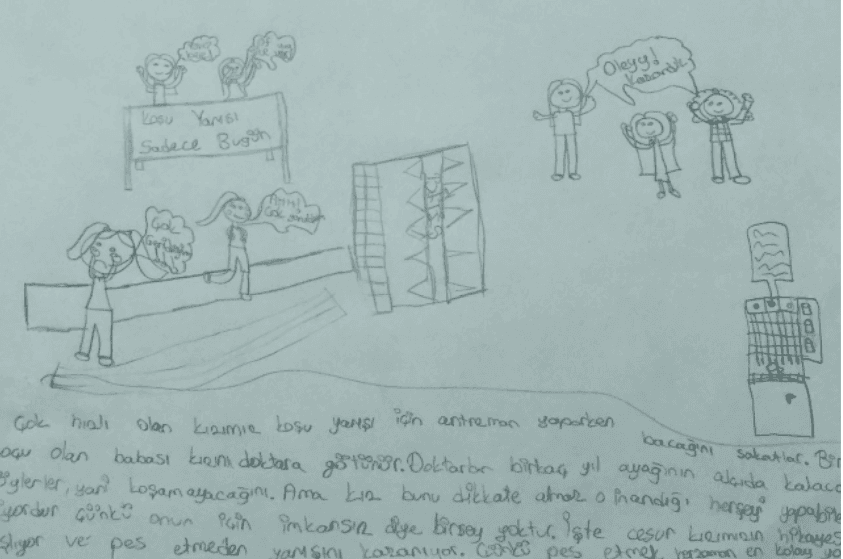 Koşu Yarışı
Sadece Bugün
Oleyy!
Kazandık
Çok
Çok hızlı olan kızımız koşu yarışı için antreman yaparken bacağını sakatlar. Bir
olan babası kızını doktora götürür. Doktorlar birkaç yıl ayağının alçıda kalaca
söylerler, yani koşamayacağını. Ama kız bunu dikkate almaz o inandığı herşeyi yapabile
çünkü onun için imkansız diye birşey yoktur. İşte cesur kızımızın hikayes
ve pes etmeden yarışını kazanıyor. Çünkü pes etmek her zaman en kolay yo